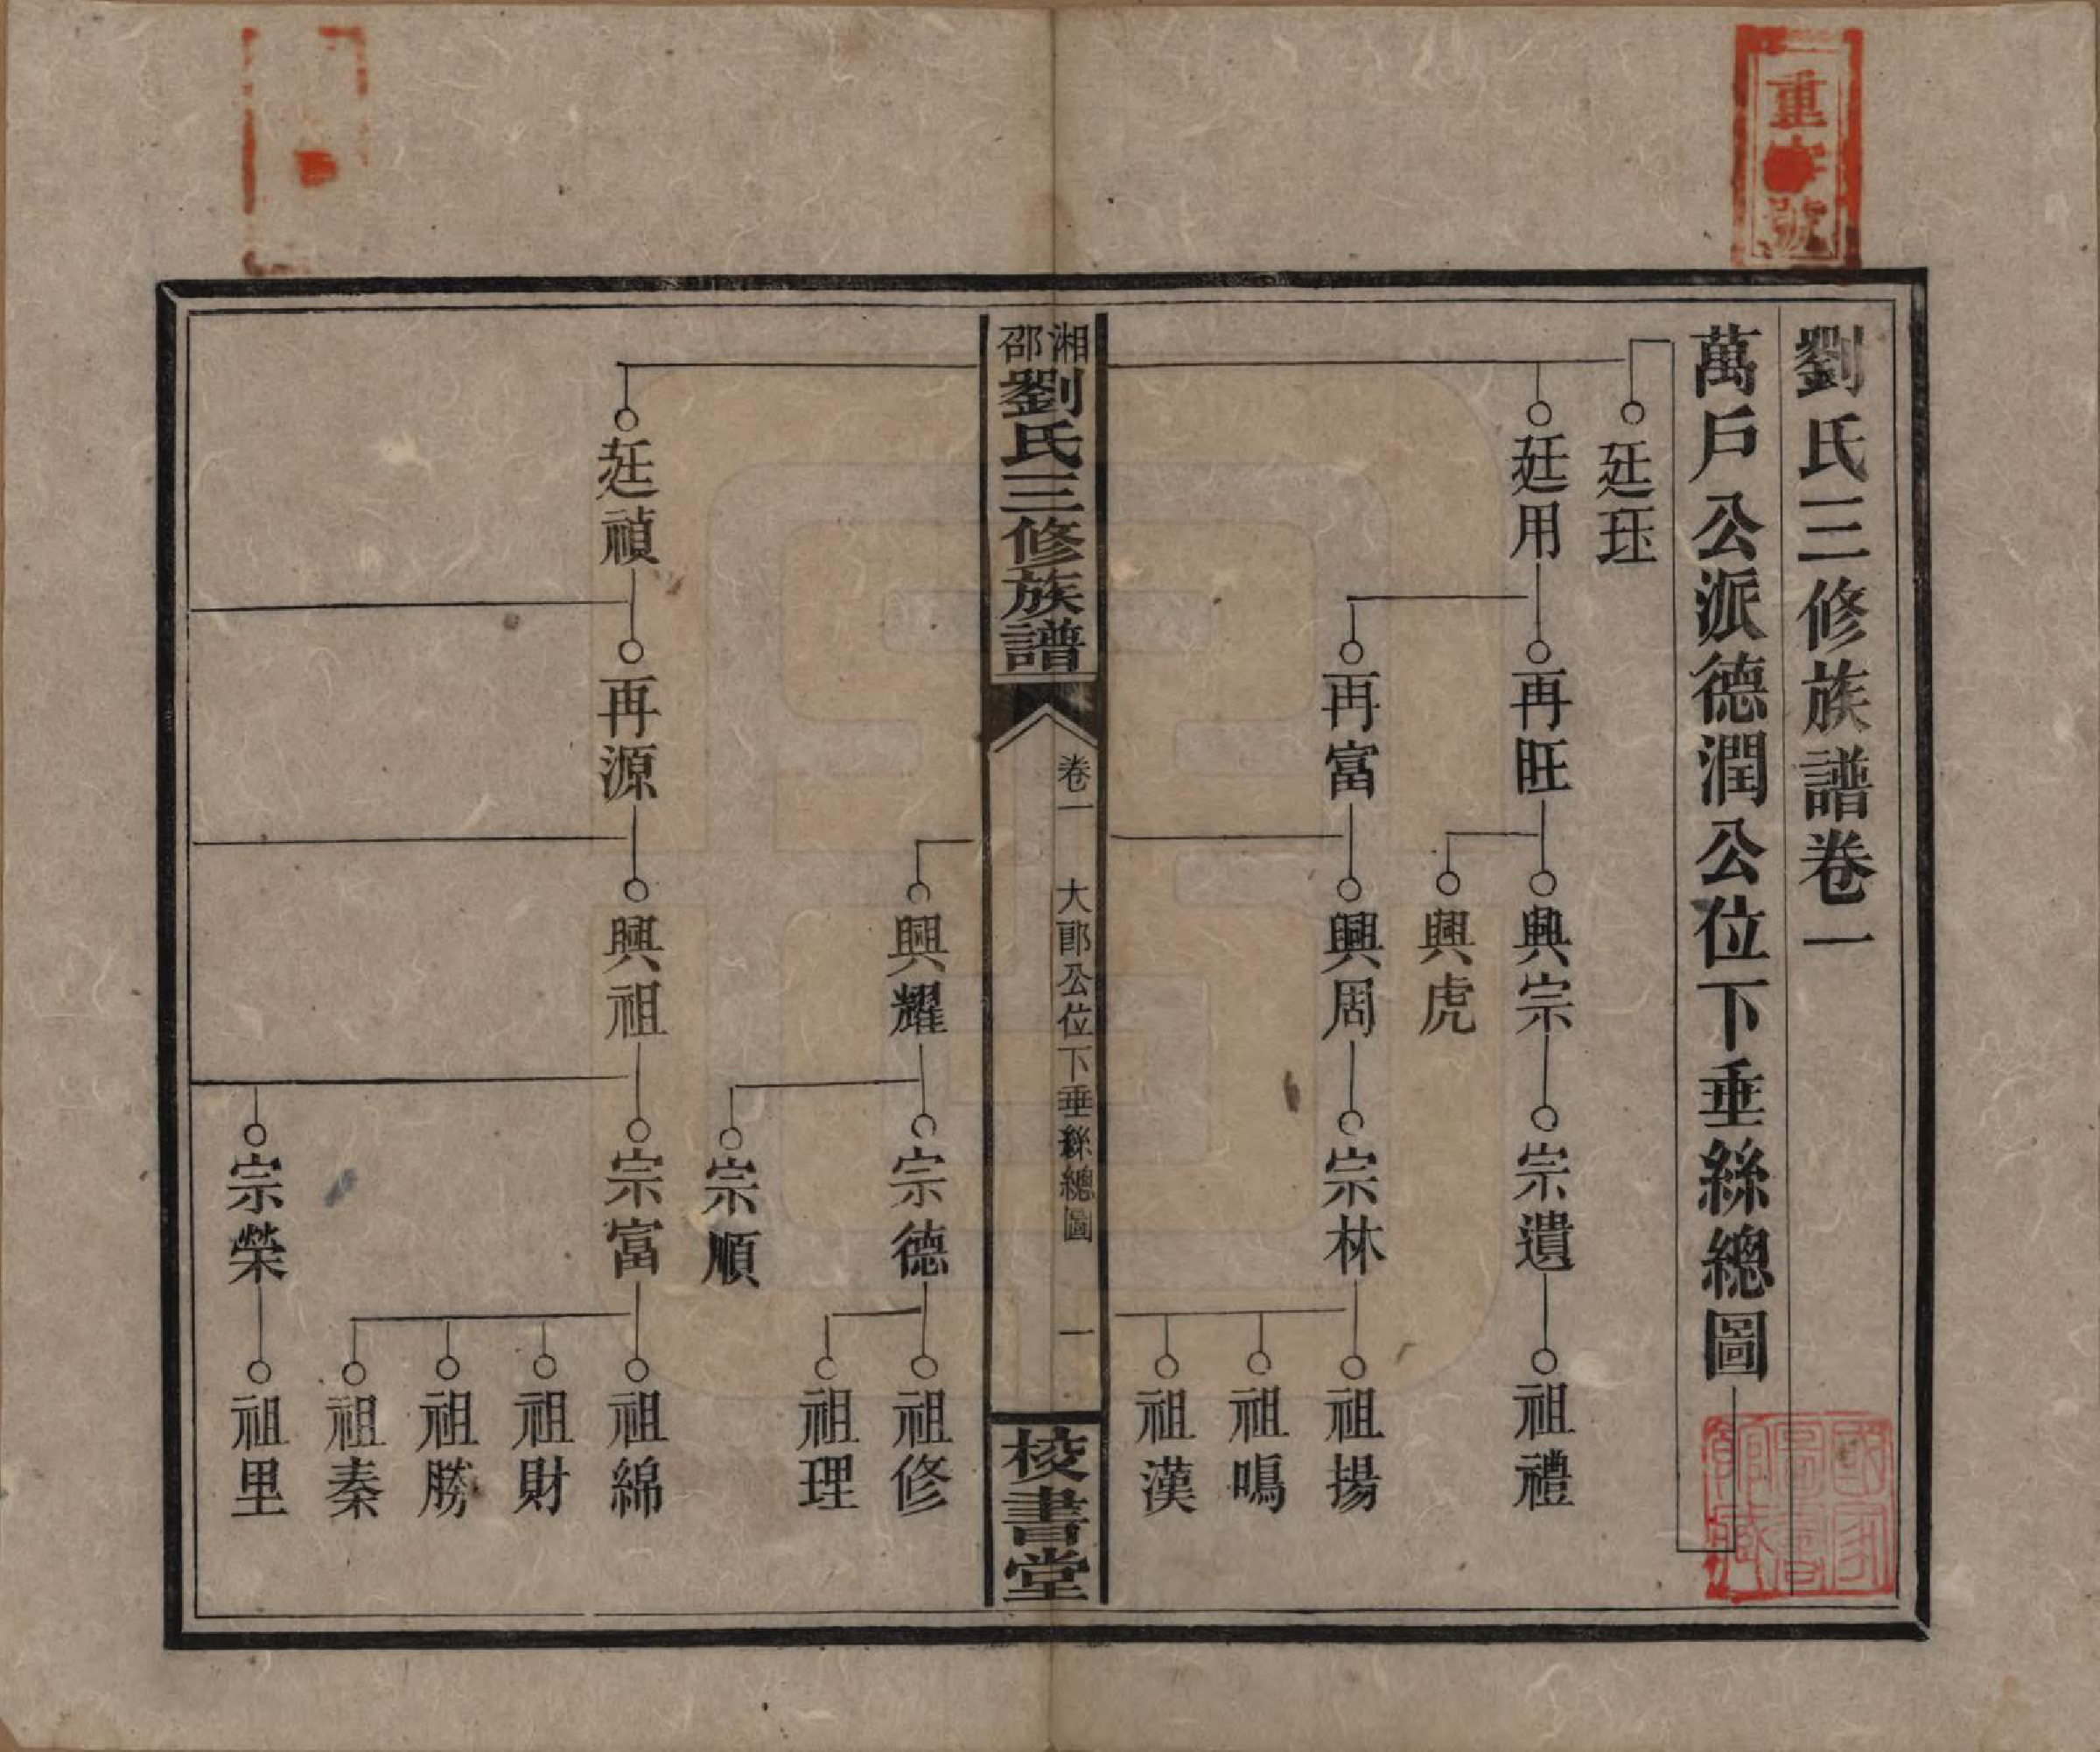 重字號
劉氏三修族譜卷一
萬戶公派德潤公位下垂絲總圖
廷珏
廷用
再旺
興宗
宗遺
祖禮
興虎
再富
興周
宗林
祖揚
祖鳴
祖漢
湘邵劉氏三修族譜
卷一
大郎公位下垂絲總圖
一
校書堂
興耀
宗德
祖修
祖理
宗順
廷禎
再源
興祖
宗富
祖綿
祖財
祖勝
祖秦
宗榮
祖里
國家圖書館藏